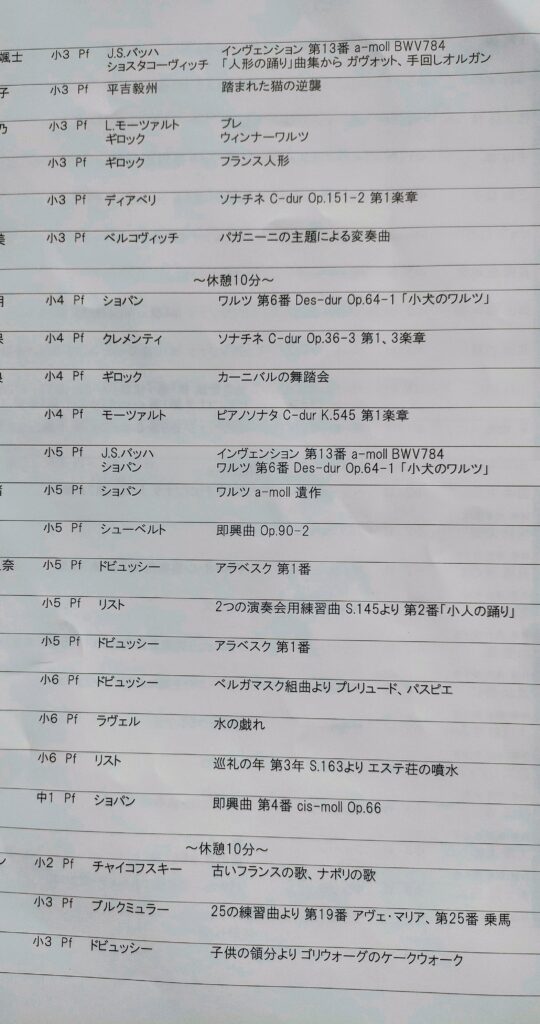 颯士 小3 Pf J.S.バッハ インヴェンション 第13番 a-moll BWV784
ショスタコーヴィッチ 「人形の踊り」曲集から ガヴォット、手回しオルガン
子 小3 Pf 平吉毅州 踏まれた猫の逆襲
乃 小3 Pf L.モーツァルト ブレ
ギロック ウィンナーワルツ
小3 Pf ギロック フランス人形
小3 Pf ディアベリ ソナチネ C-dur Op.151-2 第1楽章
美 小3 Pf ベルコヴィッチ パガニーニの主題による変奏曲
～休憩10分～
小4 Pf ショパン ワルツ 第6番 Des-dur Op.64-1 「小犬のワルツ」
小4 Pf クレメンティ ソナチネ C-dur Op.36-3 第1、3楽章
小4 Pf ギロック カーニバルの舞踏会
小4 Pf モーツァルト ピアノソナタ C-dur K.545 第1楽章
小5 Pf J.S.バッハ インヴェンション 第13番 a-moll BWV784
ショパン ワルツ 第6番 Des-dur Op.64-1 「小犬のワルツ」
小5 Pf ショパン ワルツ a-moll 遺作
小5 Pf シューベルト 即興曲 Op.90-2
奈 小5 Pf ドビュッシー アラベスク 第1番
小5 Pf リスト 2つの演奏会用練習曲 S.145より 第2番「小人の踊り」
小5 Pf ドビュッシー アラベスク 第1番
小6 Pf ドビュッシー ベルガマスク組曲より プレリュード、パスピエ
小6 Pf ラヴェル 水の戯れ
小6 Pf リスト 巡礼の年 第3年 S.163より エステ荘の噴水
中1 Pf ショパン 即興曲 第4番 cis-moll Op.66
～休憩10分～
ン 小2 Pf チャイコフスキー 古いフランスの歌、ナポリの歌
小3 Pf ブルクミュラー 25の練習曲より 第19番 アヴェ・マリア、第25番 乗馬
小3 Pf ドビュッシー 子供の領分より ゴリウォーグのケークウォーク